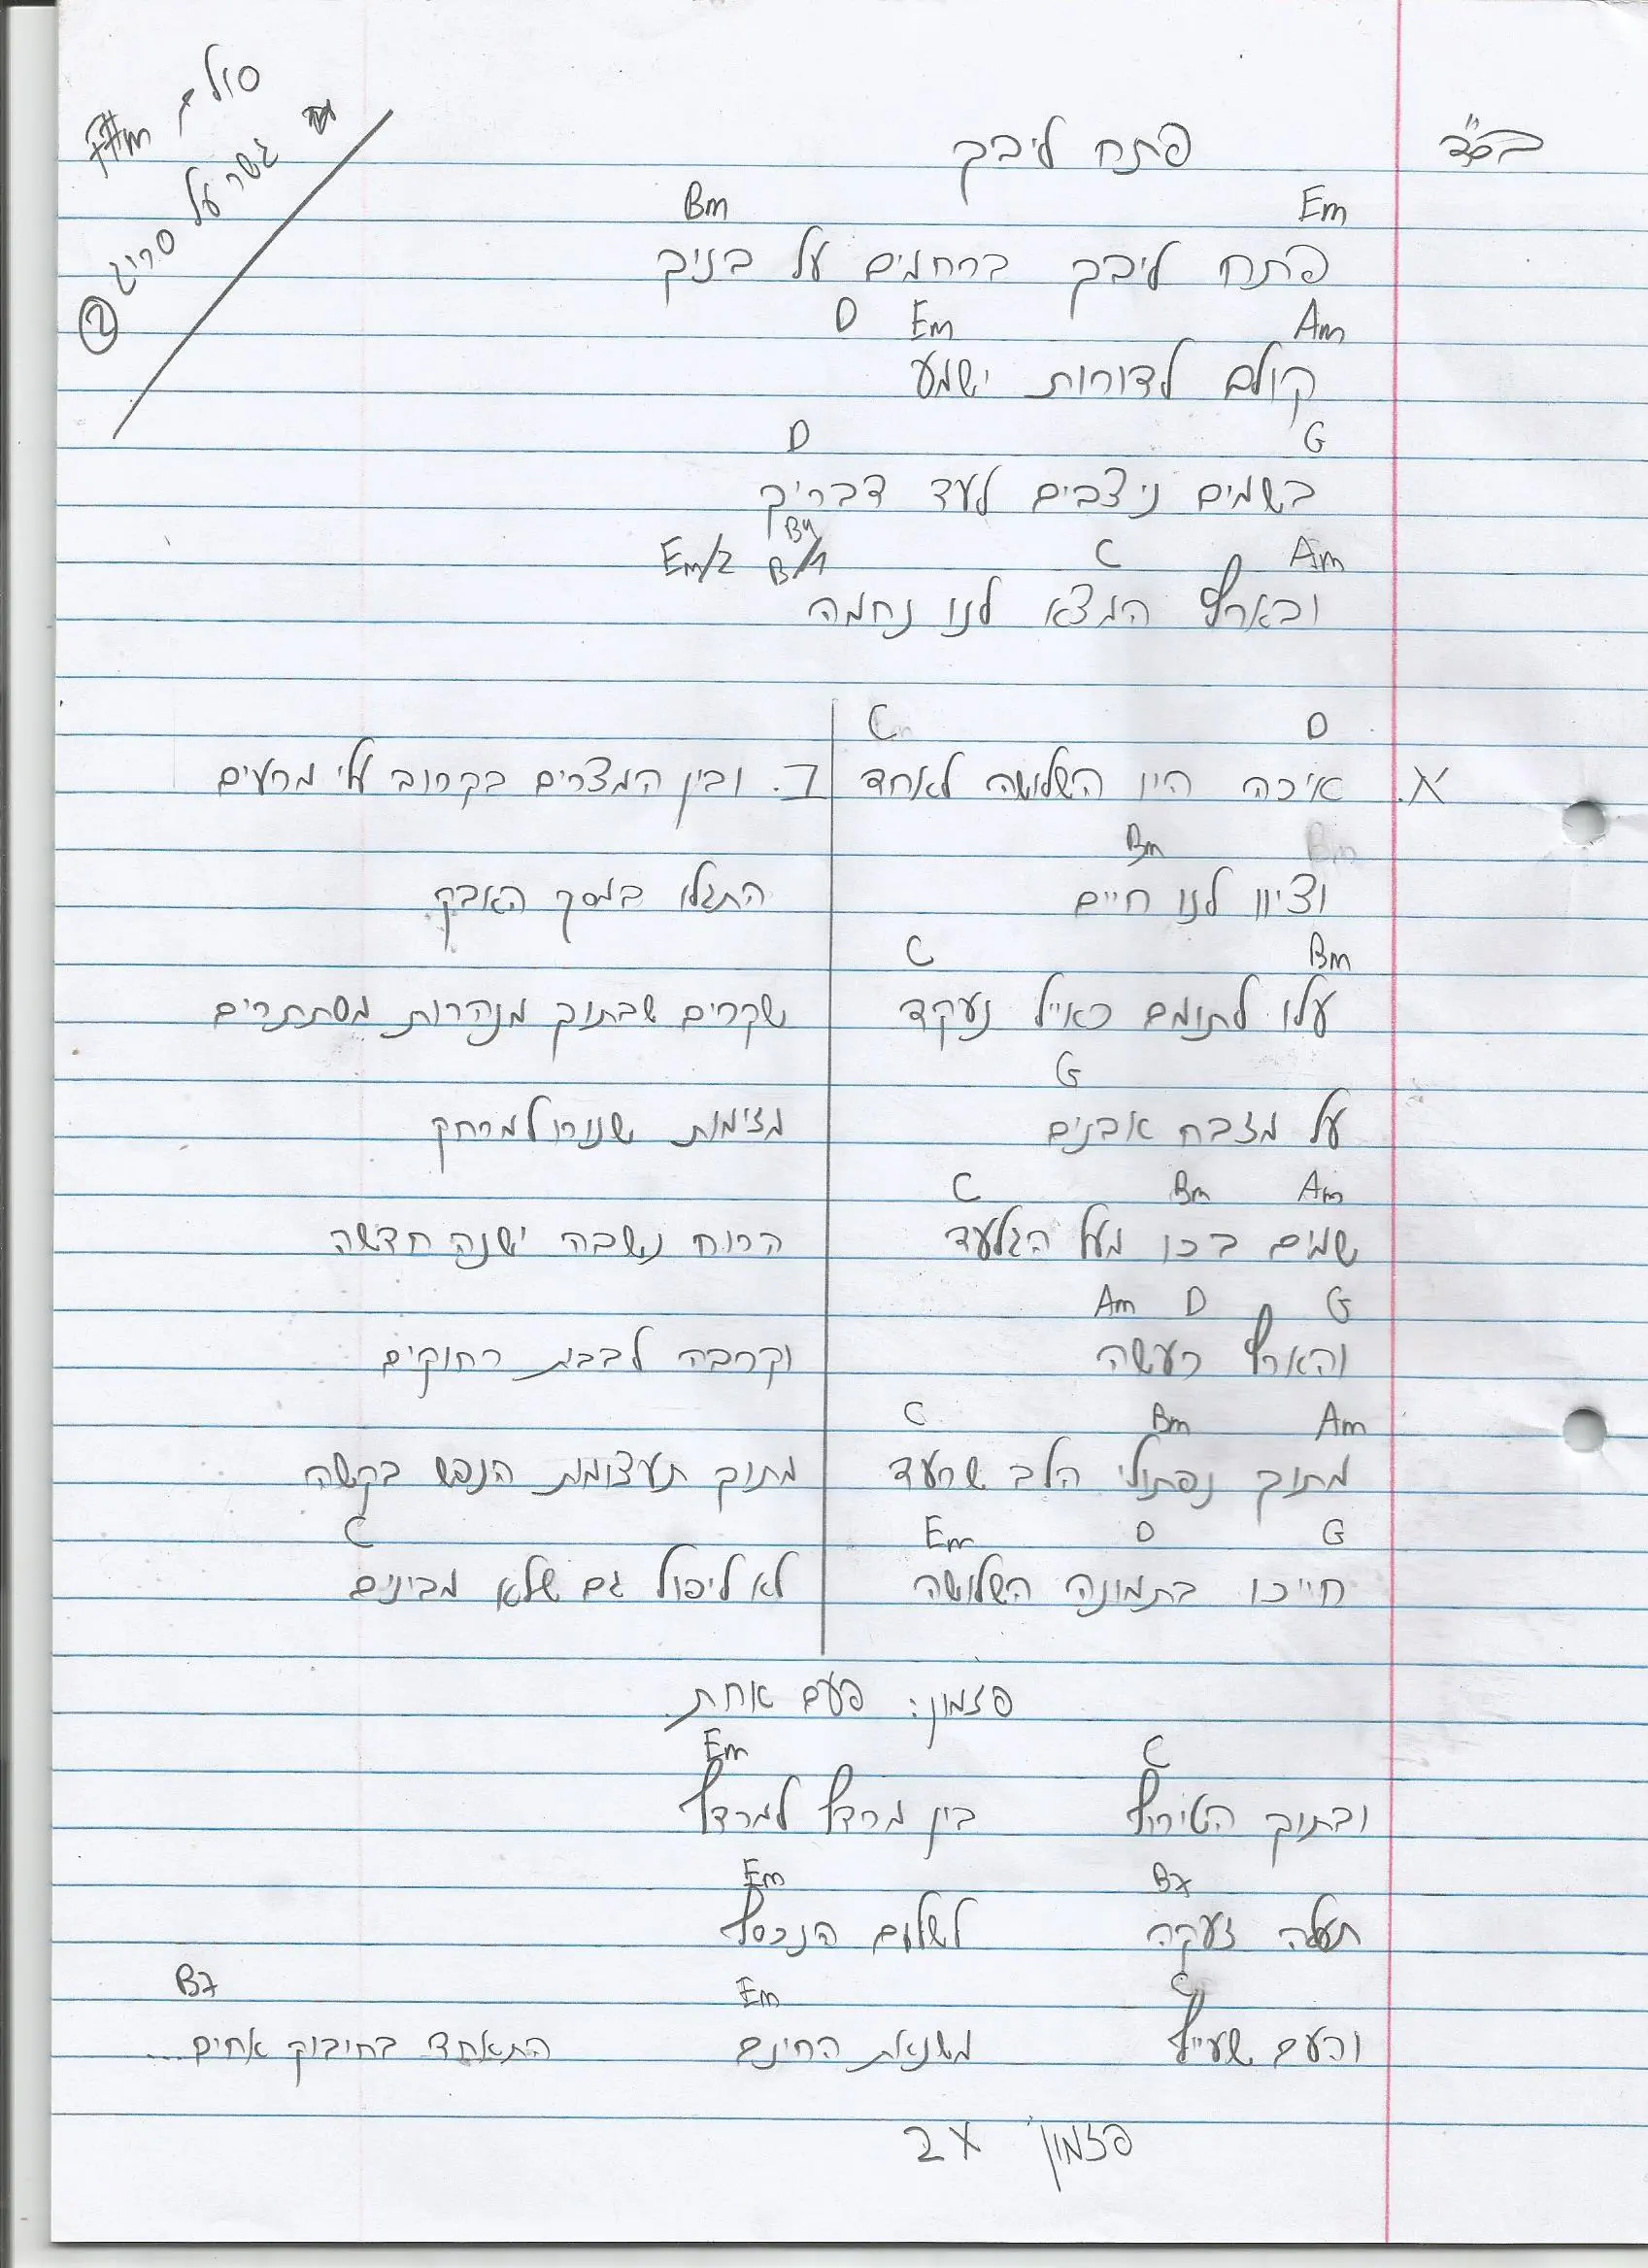 בס"ד
פתח ליבך
סולם F#m
גשר על סריג 2
Em Bm
פתח ליבך ברחמים על בניך
Am Em D
קולם לדורות ישמע
G D
בשמים ניצבים לעד דבריך
Bm
Am C B/1 Em/2
ובארץ המצא לנו נחמה
D C
א. איכה היו השלושה לאחד
Bm Bm
וציוו לנו חיים
Bm C
עלו לתומם כאייל נעקד
G
על מזבח אבנים
Am Bm C
שמים בכו מעל הגלעד
G D Am
והארץ רעשה
Am Bm C
מתוך נפתולי הלב שרעד
G D Em
חייכו בתמונה השלושה
ב. ובין המצרים בקרוב עלי מרעים
התגלו במסך האבק
שקרים שבתוך מנהרות מסתתרים
מזימות שנורו למרחק
הרוח נשבה ישנה חדשה
וקרבה לבבות רחוקים
מתוך תעצומות הנפש בקשה
C
לא ליפול גם שלא מבינים
פזמון: פעם אחת
C Em
ובתוך הטירוף בין מרדף למרדף
B7 Em
תעלה זעקה לשלום הנכסף
C Em B7
והעם שעייף משנאת החינם התאחד בחיבוק אחים...
פזמון x2